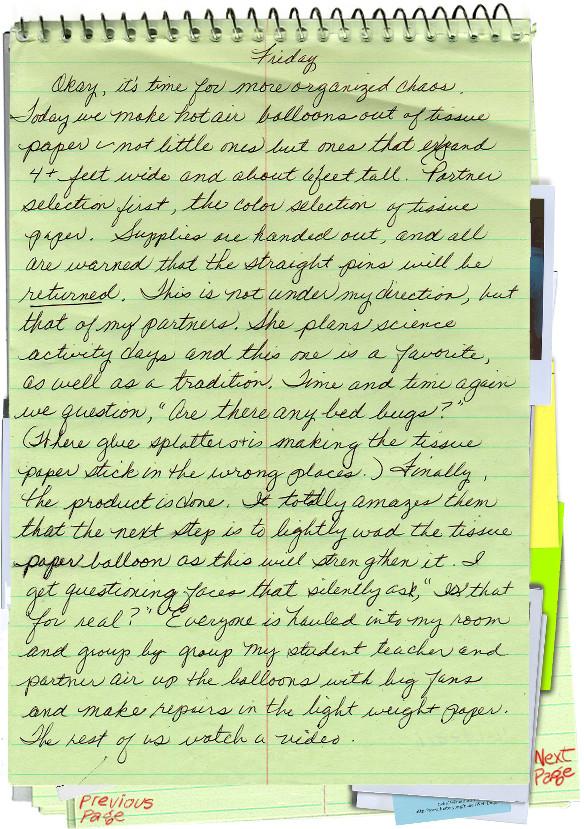 Friday
Okay, it's time for more organized chaos.
Today we make hot air balloons out of tissue
paper - not little ones but ones that expand
4+ feet wide and about 6 feet tall. Partner
selection first, the color selection of tissue
paper. Supplies are handed out, and all
are warned that the straight pins will be
returned. This is not under my direction, but
that of my partners. She plans science
activity days and this one is a favorite,
as well as a tradition. Time and time again
we question, "Are there any bed bugs?"
(Where glue splatters + is making the tissue
paper stick in the wrong places.) Finally,
the product is done. It totally amazes them
that the next step is to lightly wad the tissue
paper balloon as this will strengthen it. I
get questioning faces that silently ask, "Is that
for real?" Everyone is hauled into my room
and group by group my student teacher and
partner air up the balloons with big fans
and make repairs in the light weight paper.
The rest of us watch a video.
Next
Page
Previous
Page